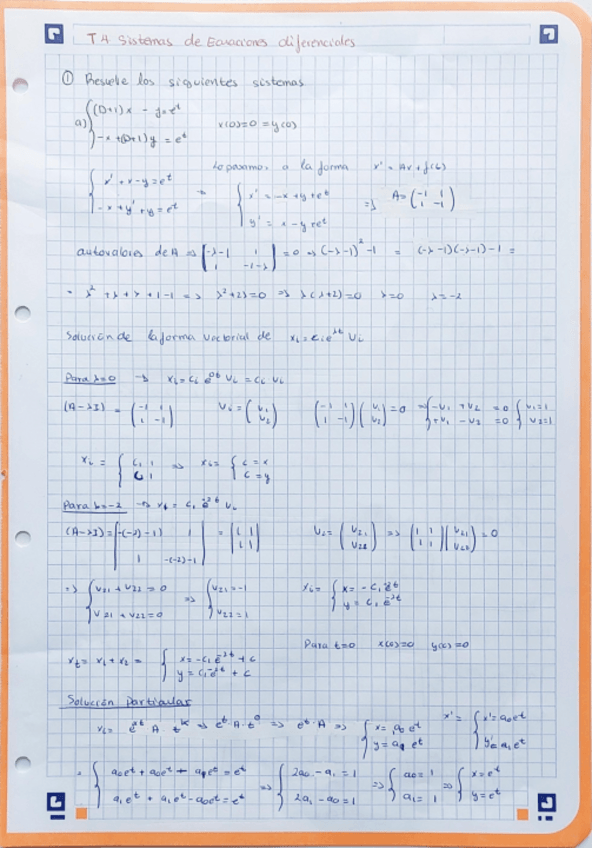 T.4 Sistemas de Ecuaciones diferenciales
① Resuelve los siguientes sistemas
a) { (D+1)x - y = e^t
-x + (D+1)y = e^t x(0)=0=y(0)
Lo pasamos a la forma x' = Ax + f(t)
{ x' + x - y = e^t ⇒ { x' = -x + y + e^t ⇒ A = (-1 1
-x + y' + y = e^t y' = x - y + e^t 1 -1)
autovalores de A ⇒ [-λ-1 1
1 -1-λ] = 0 ⇒ (-λ-1)² -1 = (-λ-1)(-λ-1)-1 =
= λ² + λ + λ + 1 - 1 ⇒ λ²+2λ=0 ⇒ λ(λ+2)=0 λ=0 λ=-2
Solución de la forma vectorial de xi = ci e^λt Vi
Para λ=0 → xi = ci e^0t Vi = ci Vi
(A-λI) = (-1 1
1 -1) Vi = (V1
V2) (-1 1
1 -1)(V1
V2) = 0 ⇒ { -V1 + V2 = 0 { V1=1
+V1 - V2 = 0 V2=1
xi = { C1 1 ⇒ xi = { C = x
C 1 C = y
Para λ=-2 → xi = C1 e^-2t Vi
(A-λI) = |-(-2)-1) 1
1 -(-2)-1| = |1 1
1 1| V2 = (V21
V22) ⇒ (1 1
1 1)(V21
V22) = 0
⇒ { V21 + V22 = 0 ⇒ { V21 = -1 xi = { x = -C1 e^-2t
V21 + V22 = 0 V22 = 1 y = C1 e^-2t
Para t=0 x(0)=0 y(0)=0
xt = x1 + x2 = { x = -C1 e^-2t + C
y = C1 e^-2t + C
Solución particular
e^αt A · t^k ⇒ e^t · A · t^0 ⇒ e^t · A ⇒ { x = a0 e^t x' = { x' = a0 e^t
y = a1 e^t y' = a1 e^t
= { a0e^t + a0e^t + a1e^t = e^t ⇒ { 2a0 - a1 = 1 ⇒ { a0 = 1 ⇒ { x = e^t
a1e^t + a1e^t - a0e^t = e^t 2a1 - a0 = 1 a1 = 1 y = e^t